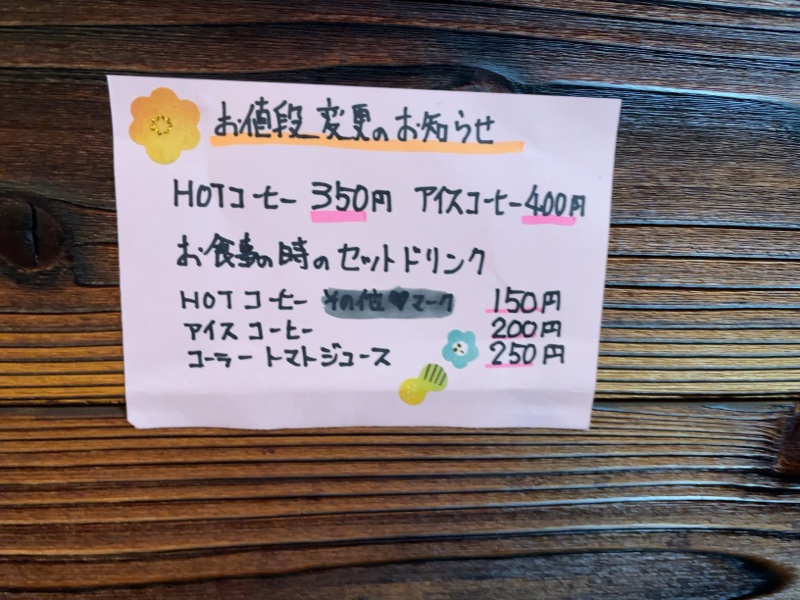 お値段変更のお知らせ
HOTコーヒー 350円 アイスコーヒー400円
お食事の時のセットドリンク
HOTコーヒー その他♥マーク 150円
アイスコーヒー 200円
コーラー トマトジュース 250円